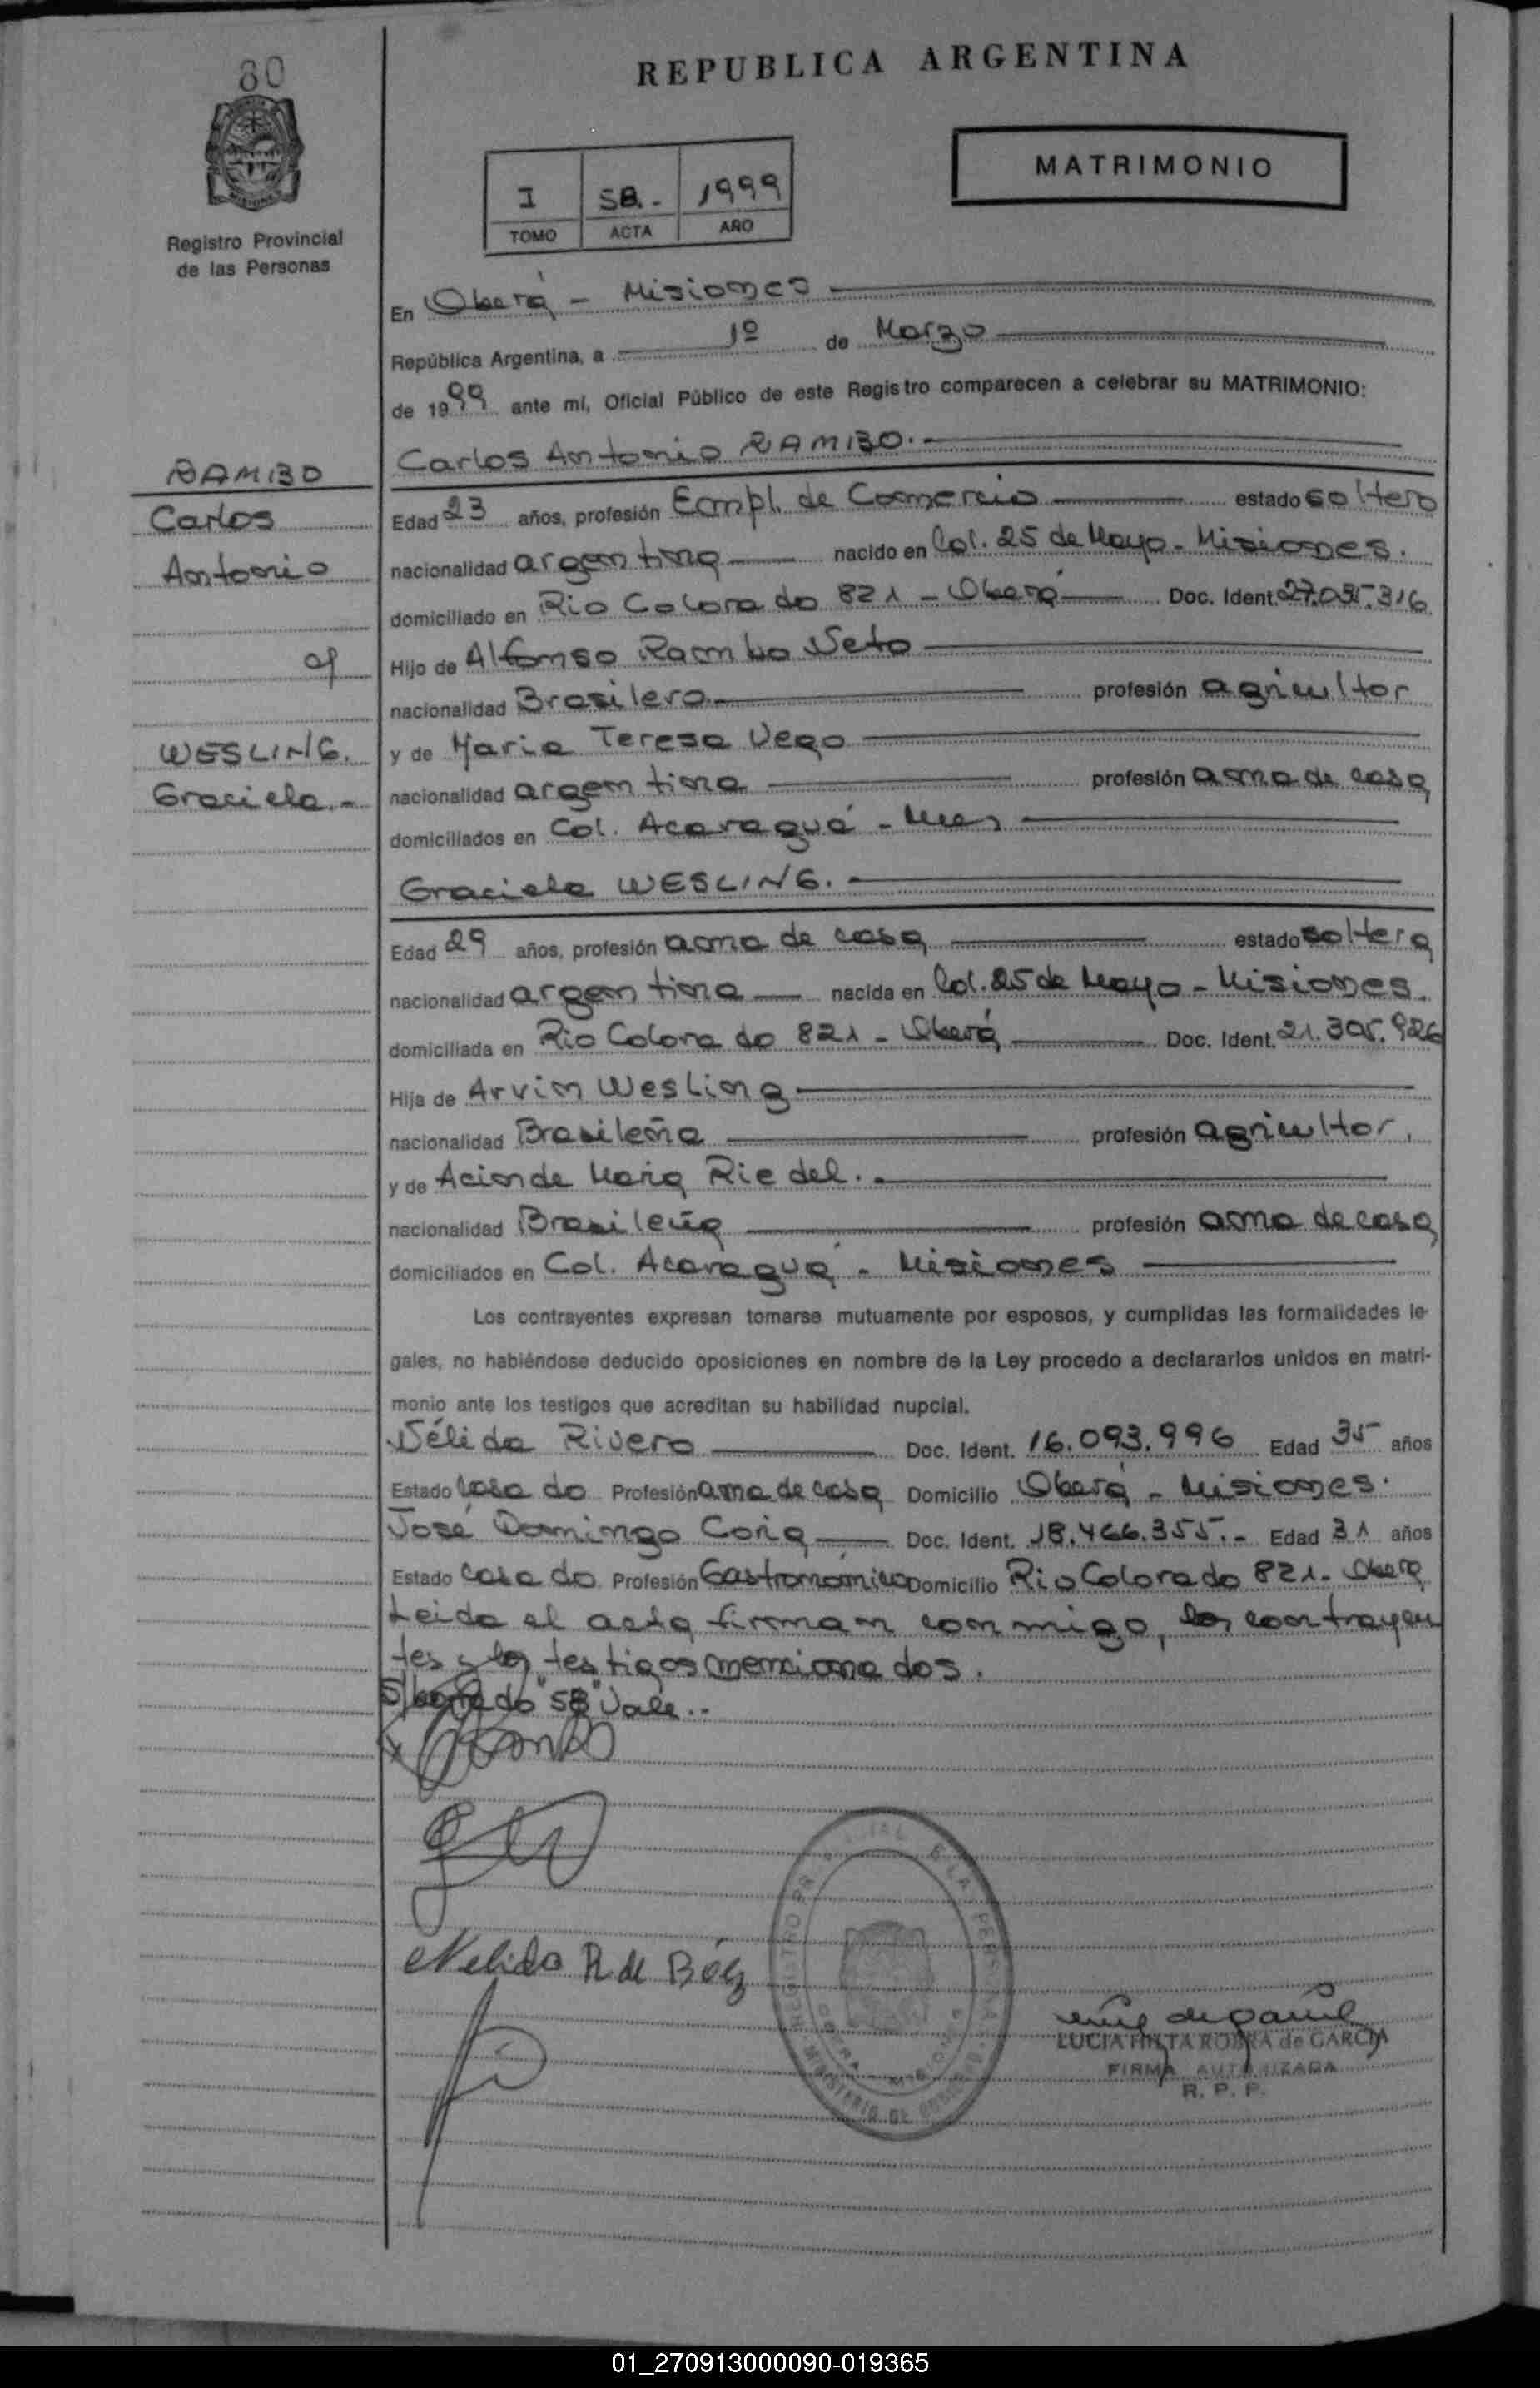 80
REPUBLICA ARGENTINA
MATRIMONIO
I 58.- 1999
TOMO ACTA AÑO
Registro Provincial
de las Personas
En Oberá - Misiones
República Argentina, a 1º de Marzo
de 1999 ante mí, Oficial Público de este Registro comparecen a celebrar su MATRIMONIO:
RAMBO
Carlos
Antonio
WESLING.
Graciela.-
Carlos Antonio RAMBO.-
Edad 23 años, profesión Empl. de Comercio estado soltero
nacionalidad argentina nacido en Col. 25 de Mayo - Misiones.
domiciliado en Rio Colorado 821 - Oberá Doc. Ident. 27.035.316
Hijo de Alfonso Rambo Neto
nacionalidad Brasilero profesión agricultor
y de Maria Teresa Vego
nacionalidad argentina profesión ama de casa
domiciliados en Col. Acaraguá - Mnes
Graciela WESLING.
Edad 29 años, profesión ama de casa estado soltera
nacionalidad argentina nacida en Col. 25 de Mayo - Misiones.
domiciliada en Rio Colorado 821 - Oberá Doc. Ident. 21.305.926
Hija de Arvin Wesling
nacionalidad Brasileña profesión agricultor.
y de Acinde Maria Riedel.
nacionalidad Brasileña profesión ama de casa
domiciliados en Col. Acaraguá - Misiones
Los contrayentes expresan tomarse mutuamente por esposos, y cumplidas las formalidades le-
gales, no habiéndose deducido oposiciones en nombre de la Ley procedo a declararlos unidos en matri-
monio ante los testigos que acreditan su habilidad nupcial.
Nélida Rivero Doc. Ident. 16.093.996 Edad 35 años
Estado Casado Profesión ama de casa Domicilio Oberá - Misiones.
José Domingo Coria Doc. Ident. 18.466.355.- Edad 31 años
Estado casado Profesión Gastronómico Domicilio Rio Colorado 821.- Oberá
Leida el acta firman conmigo, los contrayen
tes y los testigos mencionados.
S/borrado "58" Vale..
Nelida R. de Báez
REGISTRO PROVINCIAL DE LAS PERSONAS
MINISTERIO DE GOBIERNO
OBERA MISIONES
LUCIA de GARCIA
FIRMA AUTORIZADA
R. P. P.
01_270913000090-019365